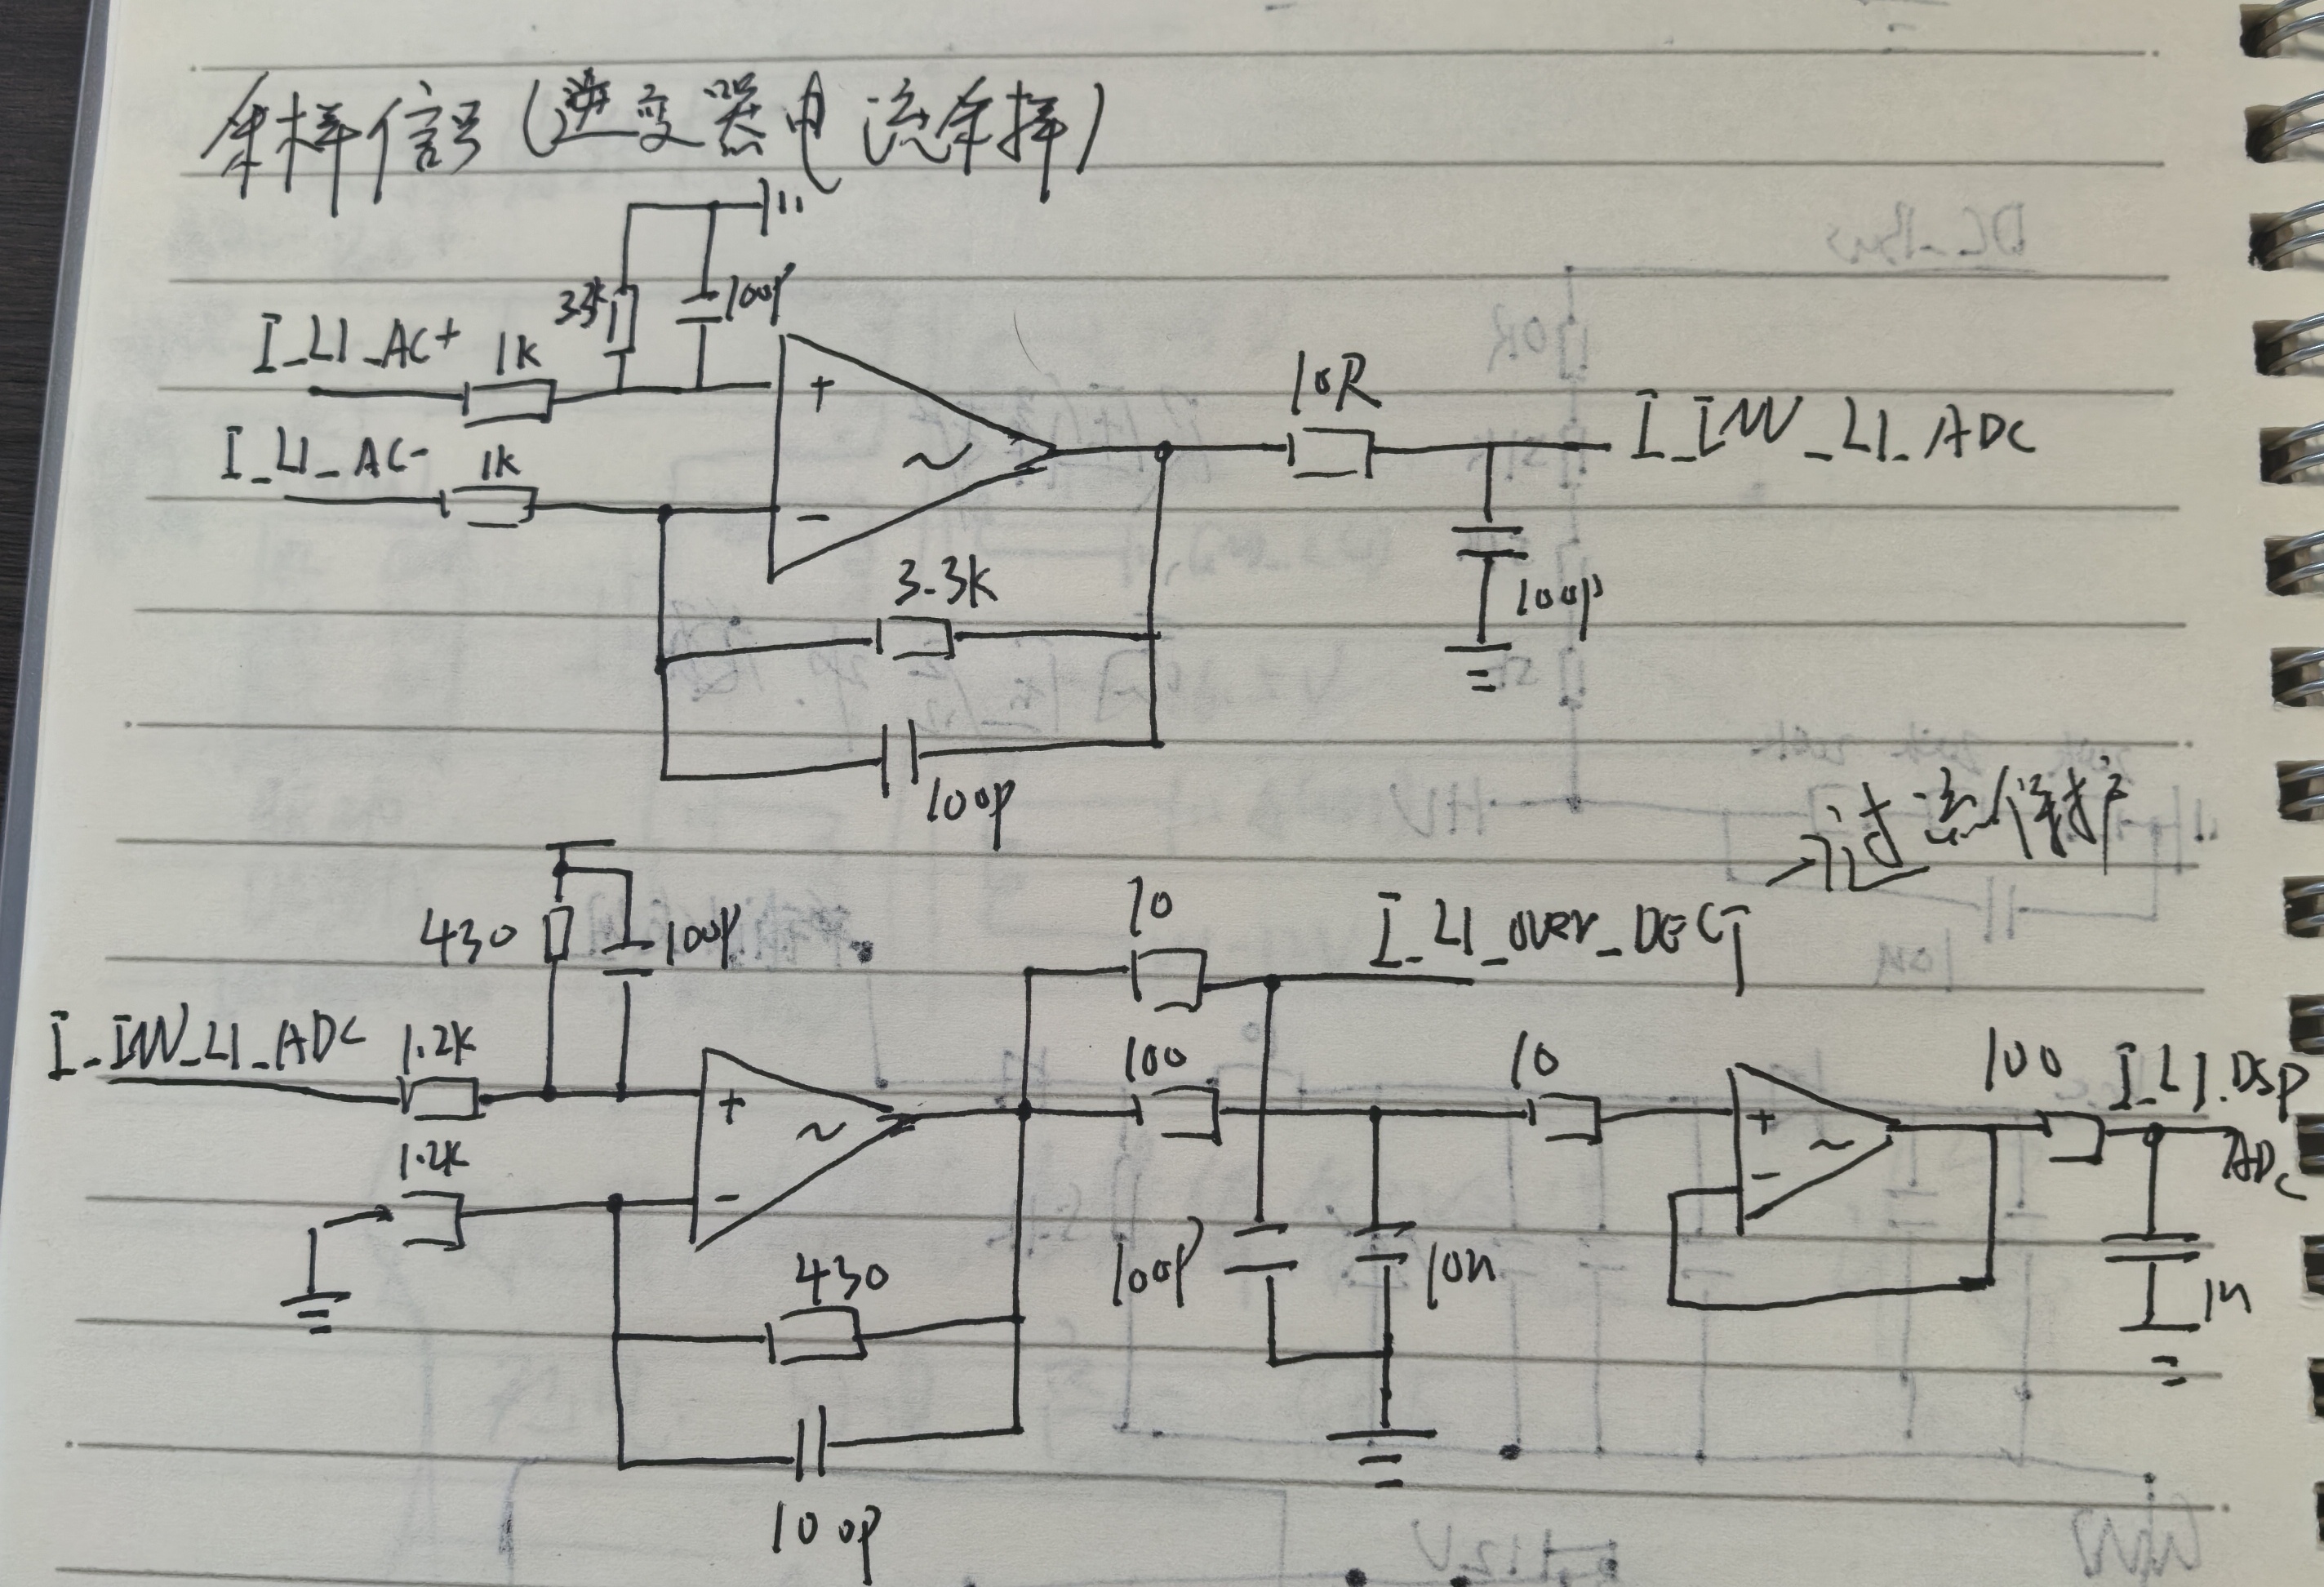 采样信号(逆变器电流采样)
33k
100p
I_L1_AC+
1k
I_L1_AC-
1k
+
-
10R
I_INV_L1_ADC
100p
3.3k
100p
→过流保护
430
100p
10
I_L1_over_DECT
I_INV_L1_ADC
1.2k
1.2k
+
-
100
10
+
-
100
I_L1.DSP
ADC
100p
10n
1n
430
100p